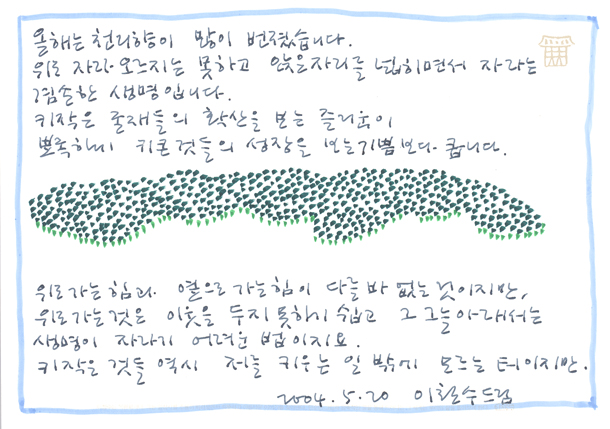 올해는 천리향이 많이 번졌습니다.
위로 자라 오르지는 못하고 앉은자리를 넓히면서 자라는
겸손한 생명입니다.
키작은 존재들의 확산을 보는 즐거움이
뾰족하게 키큰것들의 성장을 보는기쁨보다 큽니다.
위로가는힘과 옆으로 가는힘이 다를바 없는것이지만,
위로가는것은 이웃을 두지못하기 쉽고 그 그늘아래서는
생명이 자라기 어려운 법이지요.
키작은 것들 역시 저를 키우는 일 밖에 모르는 터이지만.
2004.5.20 이철수드림